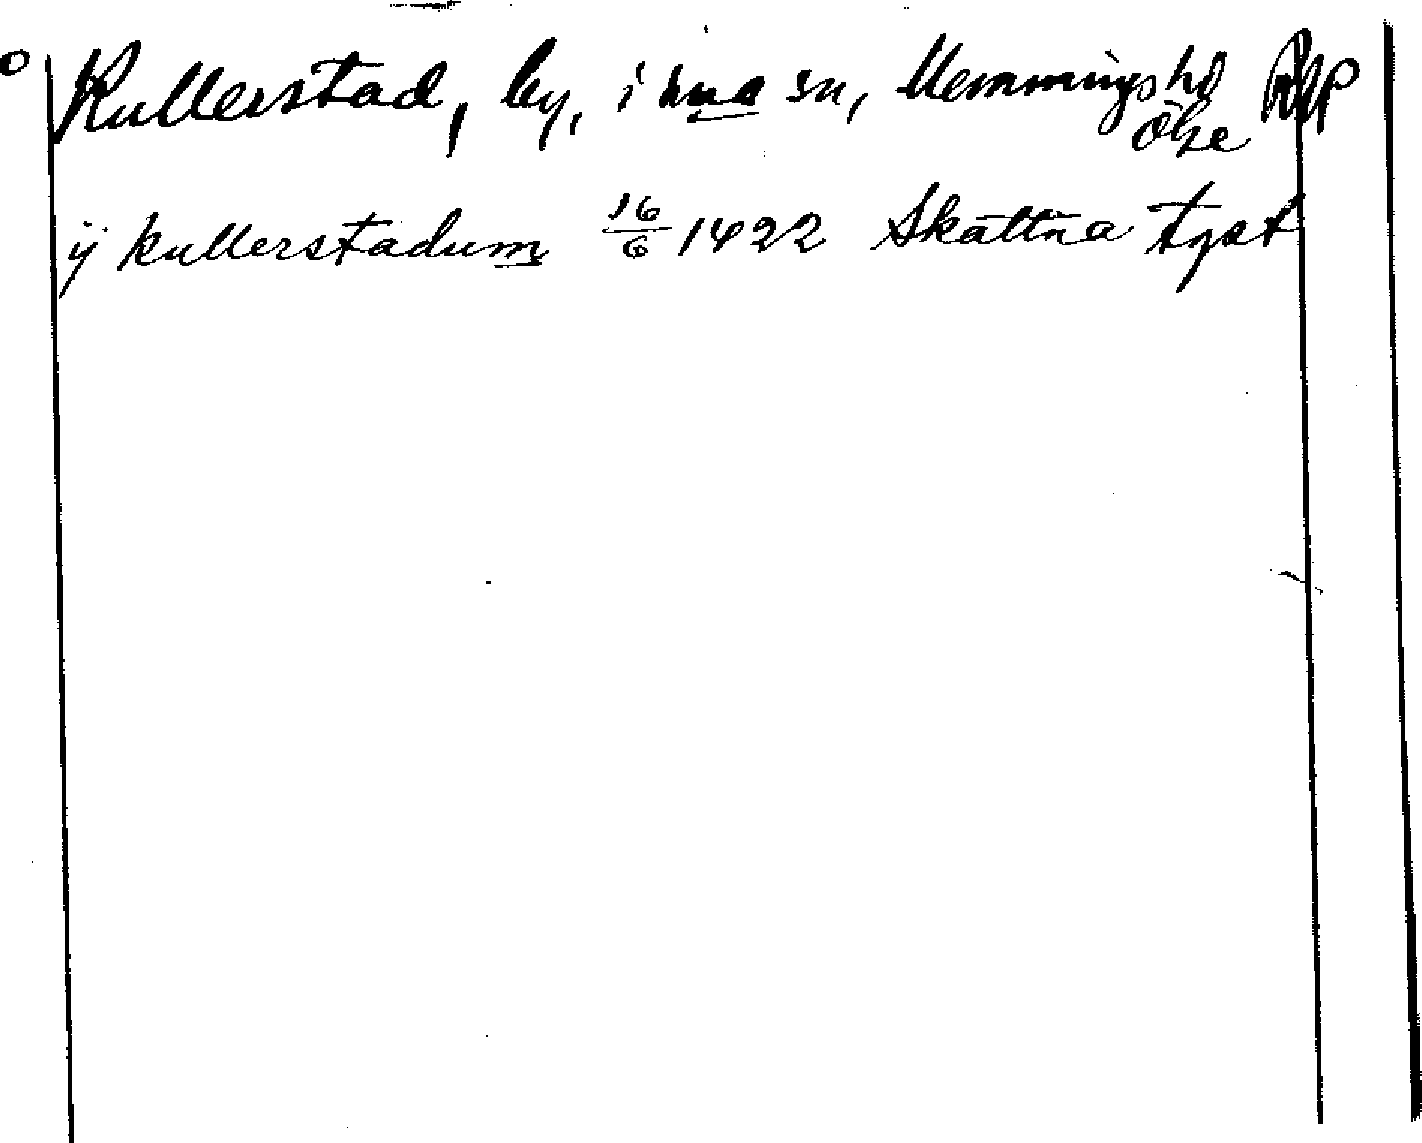 Kullerstad, by, i sn, Memmings hd
Ölse
ij kullerstadum 16/6 1422 Skattna Tyst